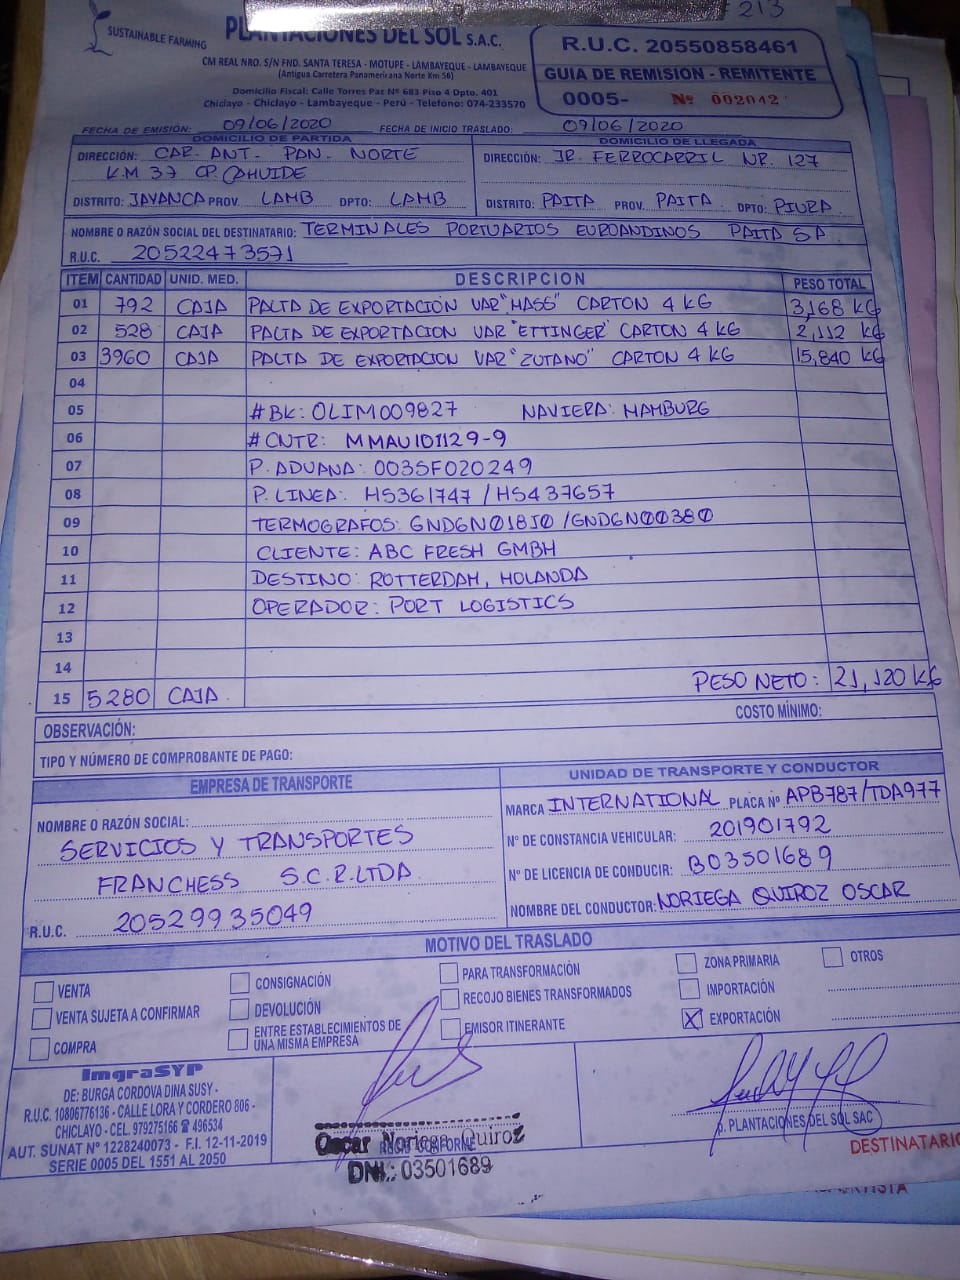 213
SUSTAINABLE FARMING
PLANTACIONES DEL SOL S.A.C.
CM REAL NRO. S/N FND. SANTA TERESA - MOTUPE - LAMBAYEQUE - LAMBAYEQUE
(Antigua Carretera Panamericana Norte Km 56)
Domicilio Fiscal: Calle Torres Paz Nº 683 Piso 4 Dpto. 401
Chiclayo - Chiclayo - Lambayeque - Perú - Telefono: 074-233570
R.U.C. 20550858461
GUIA DE REMISION - REMITENTE
0005- Nº 002042
FECHA DE EMISIÓN: 09/06/2020 FECHA DE INICIO TRASLADO: 09/06/2020
DOMICILIO DE PARTIDA
DIRECCIÓN: CAR. ANT. PAN. NORTE
KM 37 CP. CAHUIDE
DISTRITO: JAYANCA PROV. LAMB DPTO: LAMB
DOMICILIO DE LLEGADA
DIRECCIÓN: JR. FERROCARRIL NR. 127
DISTRITO: PAITA PROV. PAITA DPTO: PIURA
NOMBRE O RAZÓN SOCIAL DEL DESTINATARIO: TERMINALES PORTUARIOS EUROANDINOS PAITA SA
R.U.C. 20522473571
ITEM CANTIDAD UNID. MED. DESCRIPCION PESO TOTAL
01 792 CAJA PALTA DE EXPORTACIÓN VAR "HASS" CARTON 4 KG 3,168 KG
02 528 CAJA PALTA DE EXPORTACION VAR "ETTINGER" CARTON 4 KG 2,112 KG
03 3960 CAJA PALTA DE EXPORTACION VAR "ZUTANO" CARTON 4 KG 15,840 KG
04
05 #BK: OLIM009827 NAVIERA: HAMBURG
06 #CNTR: MMAU101129-9
07 P. ADUANA: 0035F020249
08 P. LINEA: HS361747 / HS437657
09 TERMOGRAFOS: GND6N018J0 / GND6N00380
10 CLIENTE: ABC FRESH GMBH
11 DESTINO: ROTTERDAM, HOLANDA
12 OPERADOR: PORT LOGISTICS
13
14
15 5280 CAJA. PESO NETO: 21,120 KG
OBSERVACIÓN: COSTO MÍNIMO:
TIPO Y NÚMERO DE COMPROBANTE DE PAGO:
EMPRESA DE TRANSPORTE
NOMBRE O RAZÓN SOCIAL:
SERVICIOS Y TRANSPORTES
FRANCHESS S.C.R.LTDA.
R.U.C. 20529935049
UNIDAD DE TRANSPORTE Y CONDUCTOR
MARCA INTERNATIONAL PLACA Nº APB787/TDA977
Nº DE CONSTANCIA VEHICULAR: 201901792
Nº DE LICENCIA DE CONDUCIR: B03501689
NOMBRE DEL CONDUCTOR: NORIEGA QUIROZ OSCAR
MOTIVO DEL TRASLADO
VENTA
VENTA SUJETA A CONFIRMAR
COMPRA
CONSIGNACIÓN
DEVOLUCIÓN
ENTRE ESTABLECIMIENTOS DE
UNA MISMA EMPRESA
PARA TRANSFORMACIÓN
RECOJO BIENES TRANSFORMADOS
EMISOR ITINERANTE
ZONA PRIMARIA
IMPORTACIÓN
X EXPORTACIÓN
OTROS
ImgraSYP
DE: BURGA CORDOVA DINA SUSY -
R.U.C. 10806776136 - CALLE LORA Y CORDERO 806 -
CHICLAYO - CEL. 979275166 ☎ 496534
AUT. SUNAT Nº 1228240073 - F.I. 12-11-2019
SERIE 0005 DEL 1551 AL 2050
Oscar Noriega Quiroz
DNI.: 03501689
p. PLANTACIONES DEL SOL SAC
DESTINATARIO